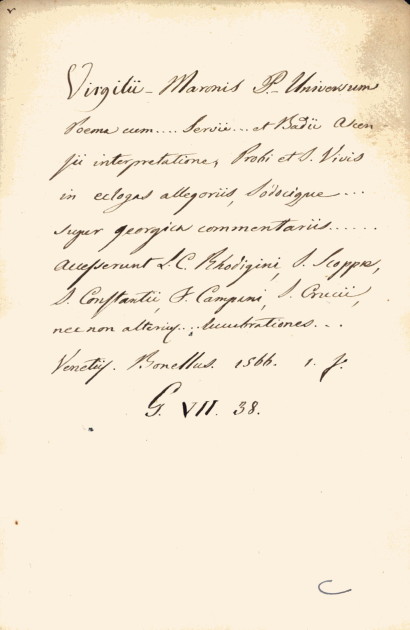 Virgilii - Maronis P. - Universum
Poema cum.... Servii... et Badii Ascen-
sii interpretatione, Probi et S. Vivis
in eclogas allegoriis, Sodocique....
super georgica commentariis......
Accesserunt L. C. Rhodigini, S. Scoppæ,
S. Constantii, F. Campani, S. Crucii,
nec non alterius... lucubrationes...
Venetiis. Bonellus. 1566. 1. f.
G. VII. 38.